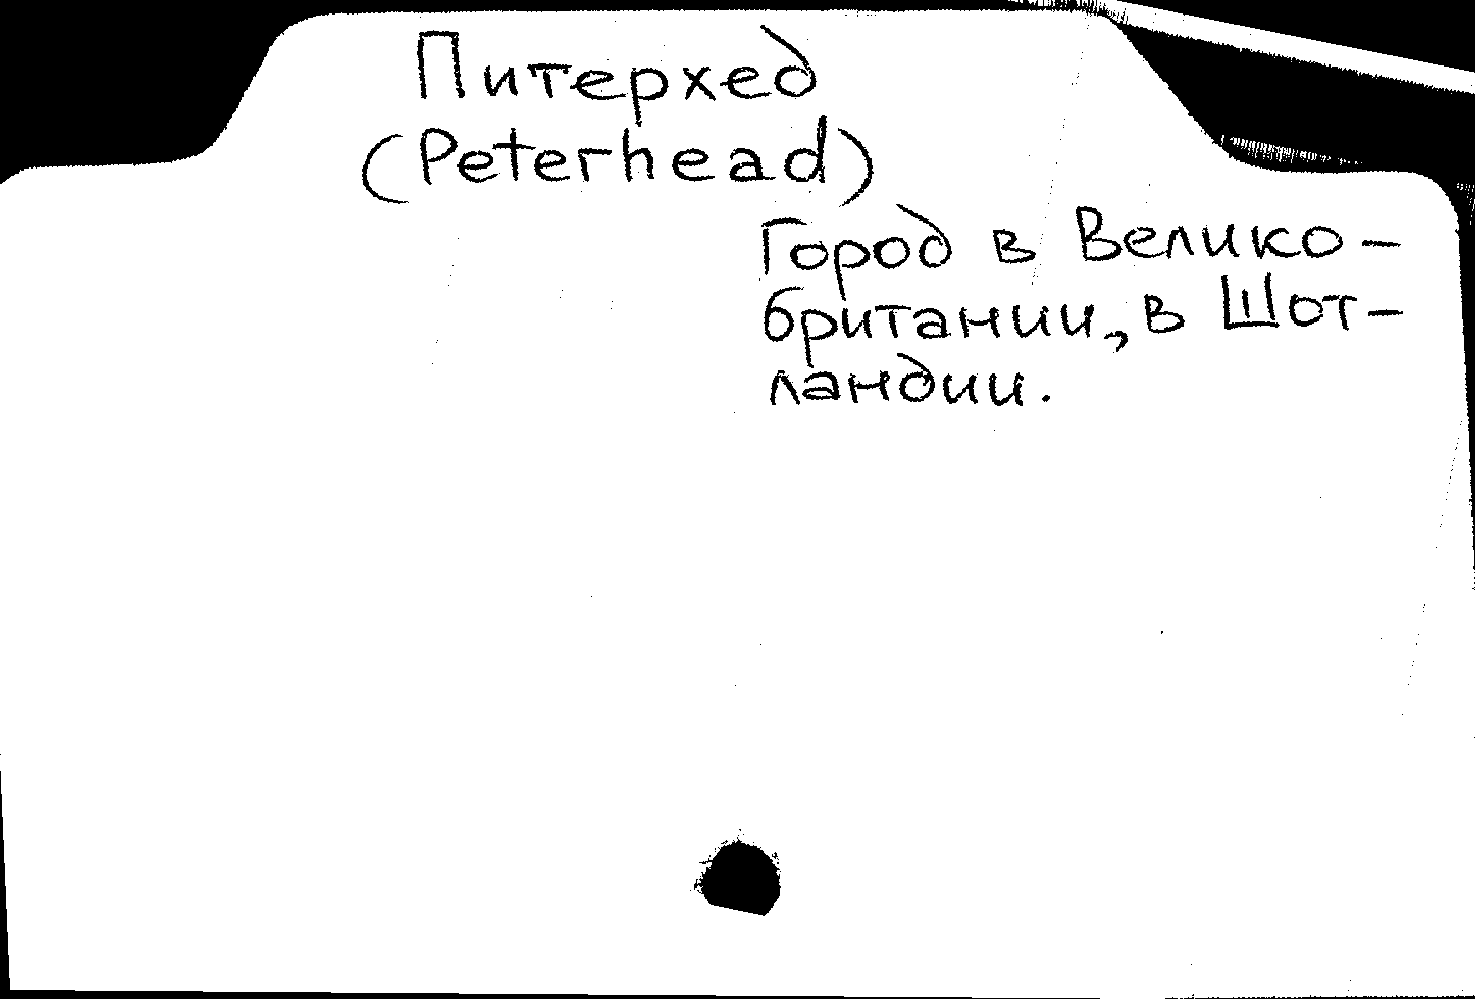 Питерхед
(Peterhead)
Город в Велико-
британии, в Шот-
ландии.